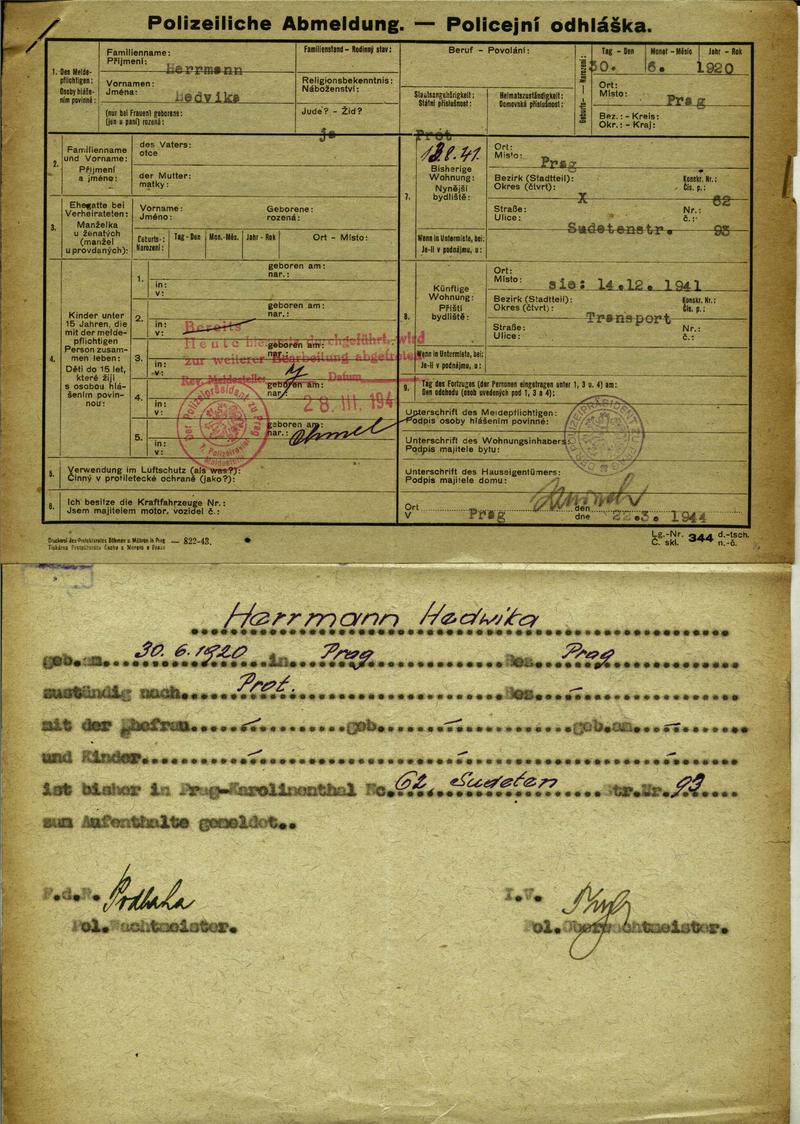 Polizeiliche Abmeldung. — Policejní odhláška.
1. Den Melde-
pflichtigen:
Osoby hláše-
ním povinné:
Familienname:
Příjmení:
Herrmann
Vornamen:
Jména:
Hedvika
(nur bei Frauen) geborene:
(jen u paní) rozená:
Familienstand - Rodinný stav:
Religionsbekenntnis:
Náboženství:
Jude? - Žid?
ja
Beruf - Povolání:
Staatsangehörigkeit:
Státní příslušnost:
Prot
Heimatszuständigkeit:
Domovská příslušnost:
Geburts- — Narození:
Tag - Den Monat - Měsíc Jahr - Rok
30. 6. 1920
Ort:
Místo:
Prag
Bez.: - Kreis:
Okr.: - Kraj:
2.
Familienname
und Vorname:
Příjmení
a jméno:
des Vaters:
otce
der Mutter:
matky:
3.
Ehegatte bei
Verheirateten:
Manželka
u ženatých
(manžel
u provdaných):
Vorname:
Jméno:
Geborene:
rozená:
Geburts-:
Narození:
Tag - Den Mon.-Měs. Jahr - Rok Ort - Místo:
4.
Kinder unter
15 Jahren, die
mit der melde-
pflichtigen
Person zusam-
men leben:
Děti do 15 let,
které žijí
s osobou hlá-
šením povin-
nou:
1.
geboren am:
nar.:
in:
v:
2.
geboren am:
nar.:
in:
v:
3.
geboren am:
nar.:
in:
v:
4.
geboren am:
nar.:
in:
v:
5.
geboren am:
nar.:
in:
v:
Bereits
Heute hierorts durchgeführt, wird
zur weiterer Bearbeitung abgetreten
Rev. Meldestelle Datum
28 III. 194
Der Polizeipräsident zu Prag
Meldestelle
5. Verwendung im Luftschutz (als was?):
Činný v protiletecké ochraně (jako?):
6. Ich besitze die Kraftfahrzeuge Nr.:
Jsem majitelem motor. vozidel č.:
7.
Bisherige
Wohnung:
Nynější
bydliště:
Ort:
Místo:
Prag
Bezirk (Stadtteil):
Okres (čtvrt):
X
Konskr. Nr.:
Čís. p.:
62
Straße:
Ulice:
Sudetenstr.
Nr.:
č.:
93
Wenn in Untermiete, bei:
Je-li v podnájmu, u:
8.
Künftige
Wohnung:
Příští
bydliště:
Ort:
Místo:
sie: 14.12. 1941
Bezirk (Stadtteil):
Okres (čtvrt):
Transport
Konskr. Nr.:
Čís. p.:
Straße:
Ulice:
Nr.:
č.:
Wenn in Untermiete, bei:
Je-li v podnájmu, u:
9. Tag des Fortzuges (der Personen eingetragen unter 1, 3 u. 4) am:
Den odchodu (osob uvedených pod 1, 3 a 4):
Unterschrift des Meldepflichtigen:
Podpis osoby hlášením povinné:
Unterschrift des Wohnungsinhabers:
Podpis majitele bytu:
Unterschrift des Hauseigentümers:
Podpis majitele domu:
POLIZEIPRÄSIDENT
Ort
V
Prag
den
dne
22.3. 1944
Druckerei des Protektorates Böhmen u. Mähren in Prag — 822-43.
Tiskárna Protektorátu Čechy a Morava v Praze
Lg.-Nr. 344 d.-tsch.
Č. skl. n.-č.
Herrmann Hedwika
geb.am 30. 6. 1920 in Prag Bez. Prag
zuständig nach Prot. Bez. –
mit der Ehefrau – geb. – geb.am –
und Kinder – – –
ist bisher in Prag-Karolinenthal No. 62, Sudeten str.Nr. 93
zum Aufenthalte gemeldet..
F.d.R. Podhaha I.V.
Pol.Wachtmeister. Pol.Oberwachtmeister.